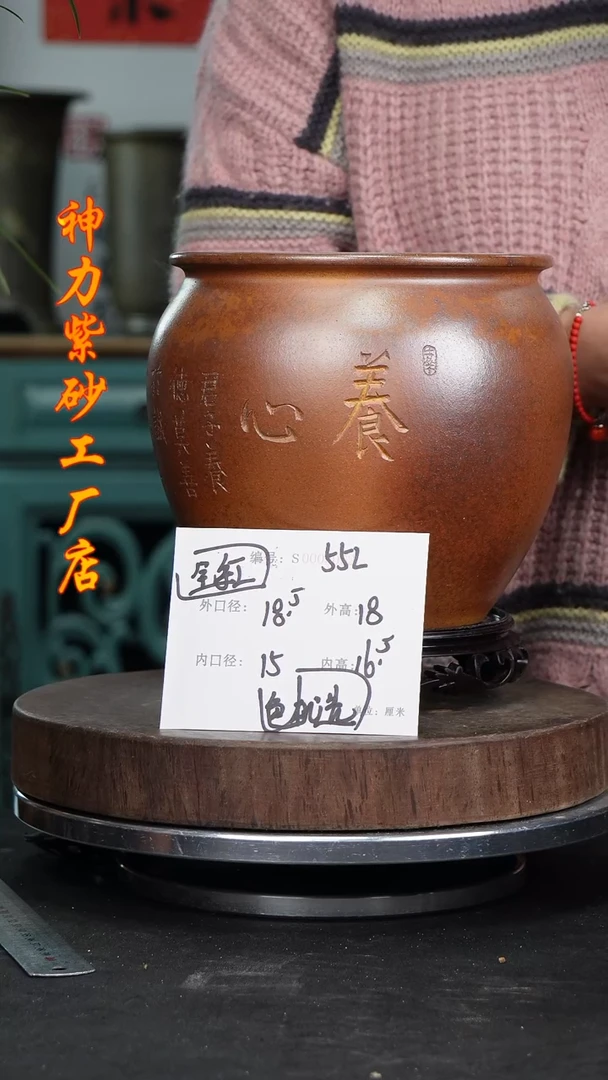 神力紫砂工厂店
養
心
君子養
德其善
编号：S000 552
外口径：18.5 外高：18
内口径：15 内高：16.5
单位：厘米